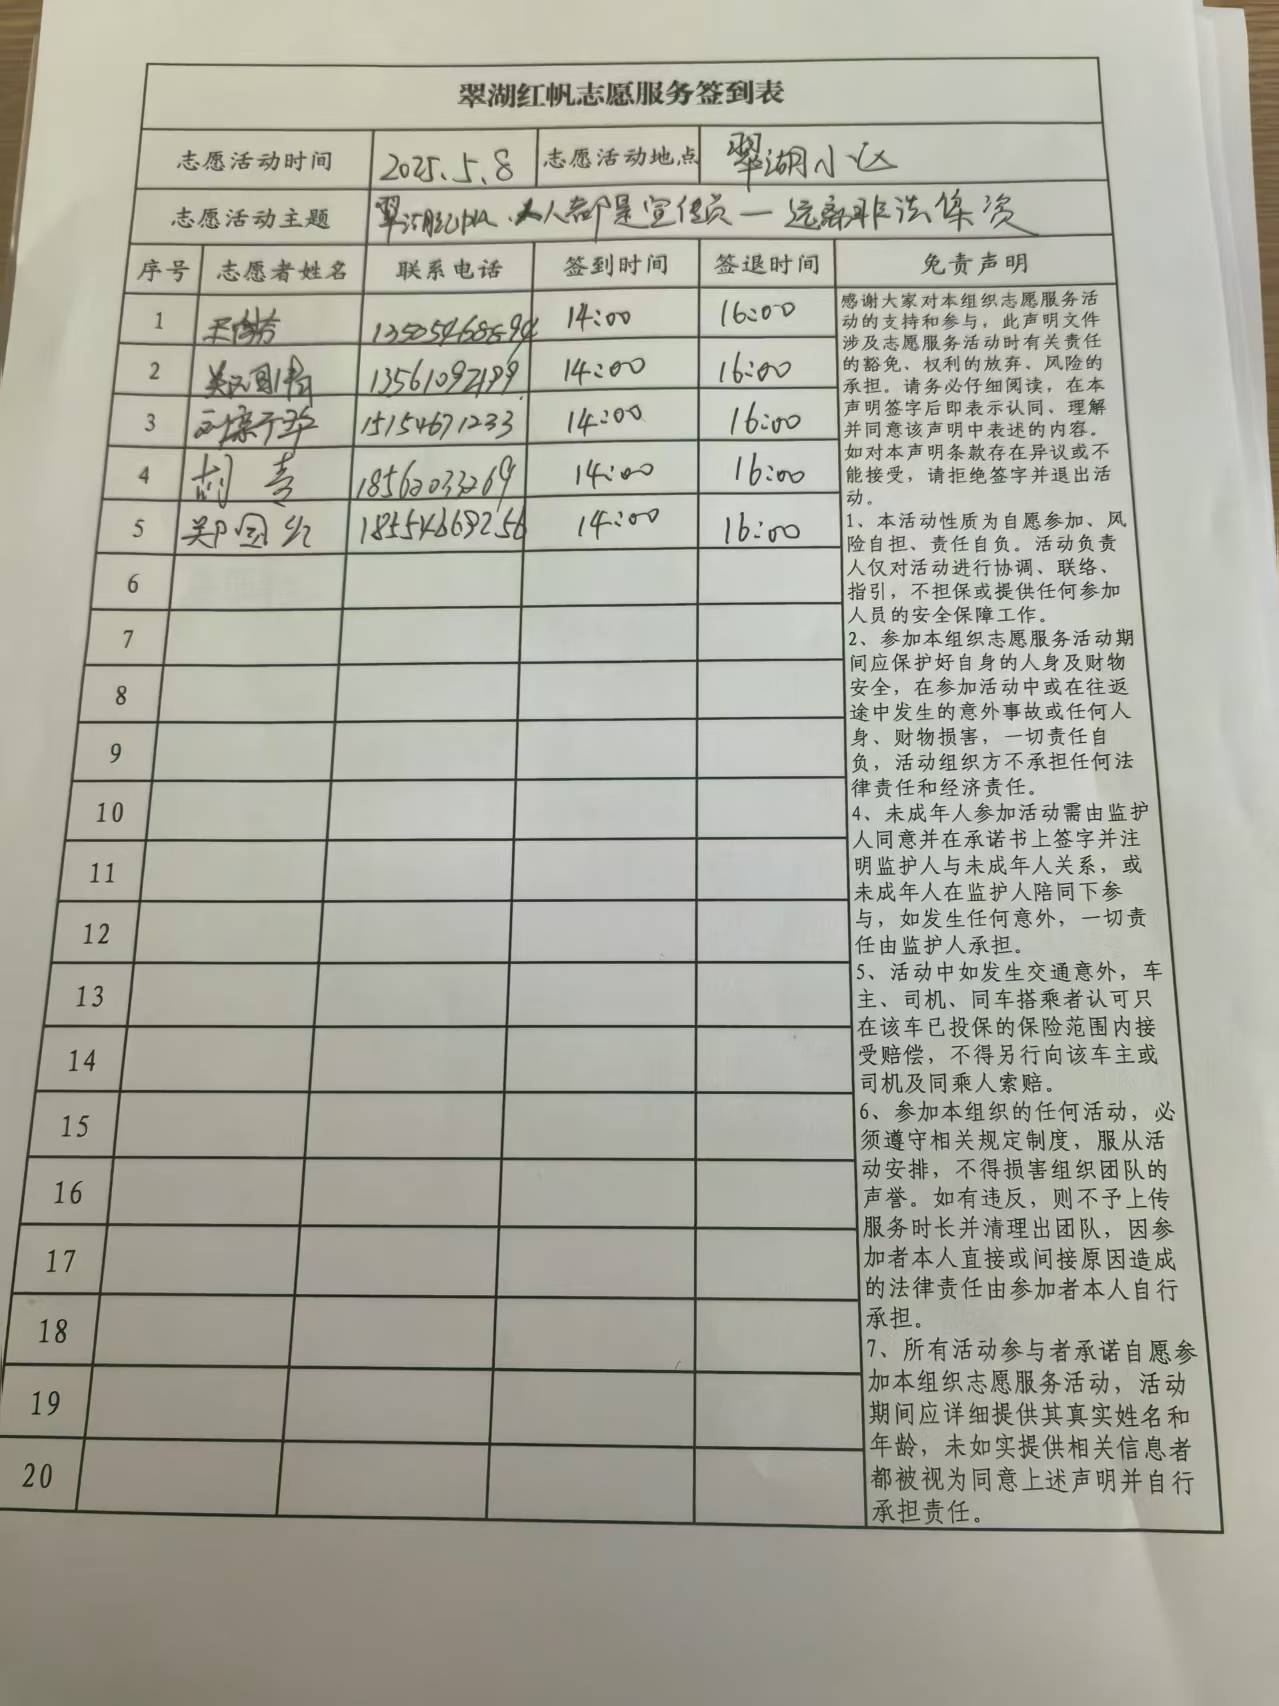 翠湖红帆志愿服务签到表
志愿活动时间 2025.5.8 志愿活动地点 翠湖小区
志愿活动主题 翠湖红帆、人人都是宣传员—远离非法集资
序号 志愿者姓名 联系电话 签到时间 签退时间 免责声明
1 14:00 16:00
2 13561092199 14:00 16:00
3 15154671233 14:00 16:00
4 胡 18562033269 14:00 16:00
5 郑国红 18554669256 14:00 16:00
6
7
8
9
10
11
12
13
14
15
16
17
18
19
20
感谢大家对本组织志愿服务活
动的支持和参与，此声明文件
涉及志愿服务活动时有关责任
的豁免、权利的放弃、风险的
承担。请务必仔细阅读，在本
声明签字后即表示认同、理解
并同意该声明中表述的内容。
如对本声明条款存在异议或不
能接受，请拒绝签字并退出活
动。
1、本活动性质为自愿参加、风
险自担、责任自负。活动负责
人仅对活动进行协调、联络、
指引，不担保或提供任何参加
人员的安全保障工作。
2、参加本组织志愿服务活动期
间应保护好自身的人身及财物
安全，在参加活动中或在往返
途中发生的意外事故或任何人
身、财物损害，一切责任自
负，活动组织方不承担任何法
律责任和经济责任。
4、未成年人参加活动需由监护
人同意并在承诺书上签字并注
明监护人与未成年人关系，或
未成年人在监护人陪同下参
与，如发生任何意外，一切责
任由监护人承担。
5、活动中如发生交通意外，车
主、司机、同车搭乘者认可只
在该车已投保的保险范围内接
受赔偿，不得另行向该车主或
司机及同乘人索赔。
6、参加本组织的任何活动，必
须遵守相关规定制度，服从活
动安排，不得损害组织团队的
声誉。如有违反，则不予上传
服务时长并清理出团队，因参
加者本人直接或间接原因造成
的法律责任由参加者本人自行
承担。
7、所有活动参与者承诺自愿参
加本组织志愿服务活动，活动
期间应详细提供其真实姓名和
年龄，未如实提供相关信息者
都被视为同意上述声明并自行
承担责任。